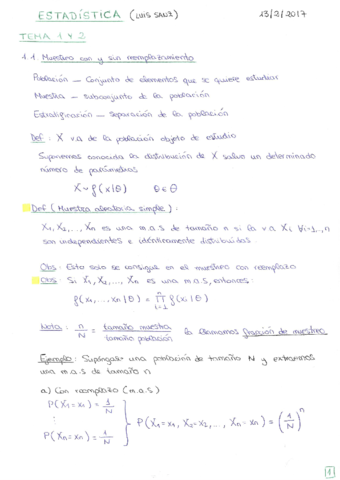 ESTADÍSTICA (LUIS SANZ) 13/2/2017
TEMA 1 Y 2
1.1 Muestreo con y sin reemplazamiento
Población — Conjunto de elementos que se quiere estudiar
Muestra — Subconjunto de la población
Estratificación — Separación de la población
Def: X v.a de la población objeto de estudio
Suponemos conocida la distribución de X salvo un determinado
número de parámetros
X ~ f(x|θ) θ ∈ Θ
Def (Muestra aleatoria simple):
X₁, X₂, ..., Xn es una m.a.s de tamaño n si la v.a Xi ∀i=1,..,n
son independientes e idénticamente distribuidas.
Obs: Esto solo se consigue en el muestreo con reemplazo
Obs: Si X₁, X₂, ..., Xn es una m.a.s, entonces:
f(x₁, ..., xn|θ) = ∏ᵢ₌₁ⁿ f(xi|θ)
Nota: n/N = tamaño muestra / tamaño población la llamamos fracción de muestreo
Ejemplo: Supongase una población de tamaño N y extraemos
una m.a.s de tamaño n
a) Con reemplazo (m.a.s)
P(X₁=x₁) = 1/N
⋮
P(Xn=xn) = 1/N } P(X₁=x₁, X₂=x₂, ..., Xn=xn) = (1/N)ⁿ
1